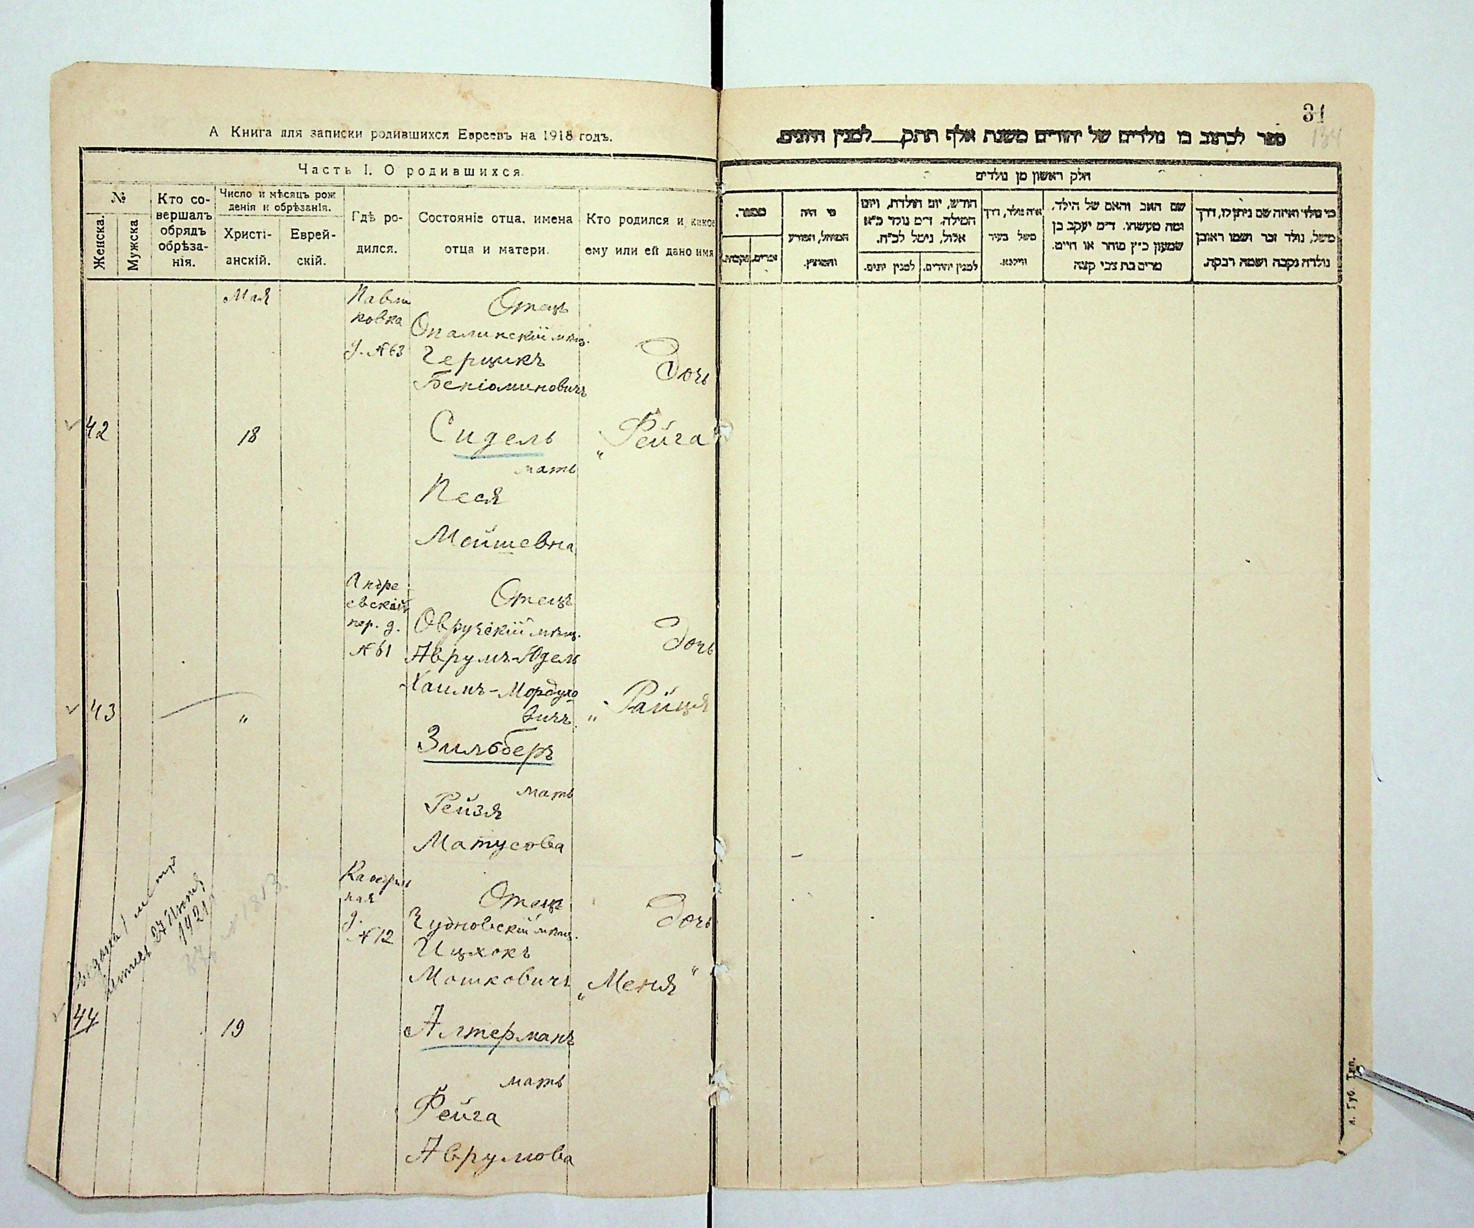 А Книга для записки родившихся Евреевъ на 1918 годъ.
Часть I. О родившихся.
№
Женска.
Мужска
Кто со-
вершалъ
обрядъ
обрѣза-
нія.
Число и мѣсяцъ рож
денія и обрѣзанія.
Христі-
анскій.
Еврей-
скій.
Гдѣ ро-
дился.
Состояніе отца, имена
отца и матери.
Кто родился и какое
ему или ей дано имя
42
Мая
18
Павли
ковка
д. №63
Отецъ
Опалинскій мѣщ.
Герщикъ
Бениоминовичъ
Сидель
мать
Песя
Мойшевна
Дочь
„Фейга"
43
"
Андре
евскій
пер. д.
№61
Отецъ
Овручскій мѣщ.
Аврумъ-Юдель
Хаимъ-Мордухо
вичъ
Зильберъ
мать
Рейзя
Матусова
Дочь
„Райця
44
27 Июня
1921
19
ная
д.
№12
Отецъ
Чудновскій мѣщ.
Ицхокъ
Мошковичъ
Алтерманъ
мать
Фейга
Аврумова
Дочь
„Меня"
31
134
ספר לכתוב בו נולדים של יהודים משנת אלף תתק___למנין היונים.
חלק ראשון מן נולדים
מספר.
נקבות.
זכרים.
מי היה
המוהל, הפורע
והמוצץ.
חודש, יום הולדת, ויום
המילה. ד״מ נולד כ״א
אלול, ניטל לכ״ח.
למנין יונים.
למנין יהודים.
איה נולד, דרך
משל בעיר
ווילנא.
שם האב והאם של הילד.
ומה מעשהו. ד״מ יעקב בן
שמעון כ״ץ סוחר או חייט.
מרים בת צבי קצה
מי נולד ואיזה שם ניתן לו, דרך
משל, נולד זכר ושמו ראובן
נולדה נקבה ושמה רבקה.
Губ. Тип.